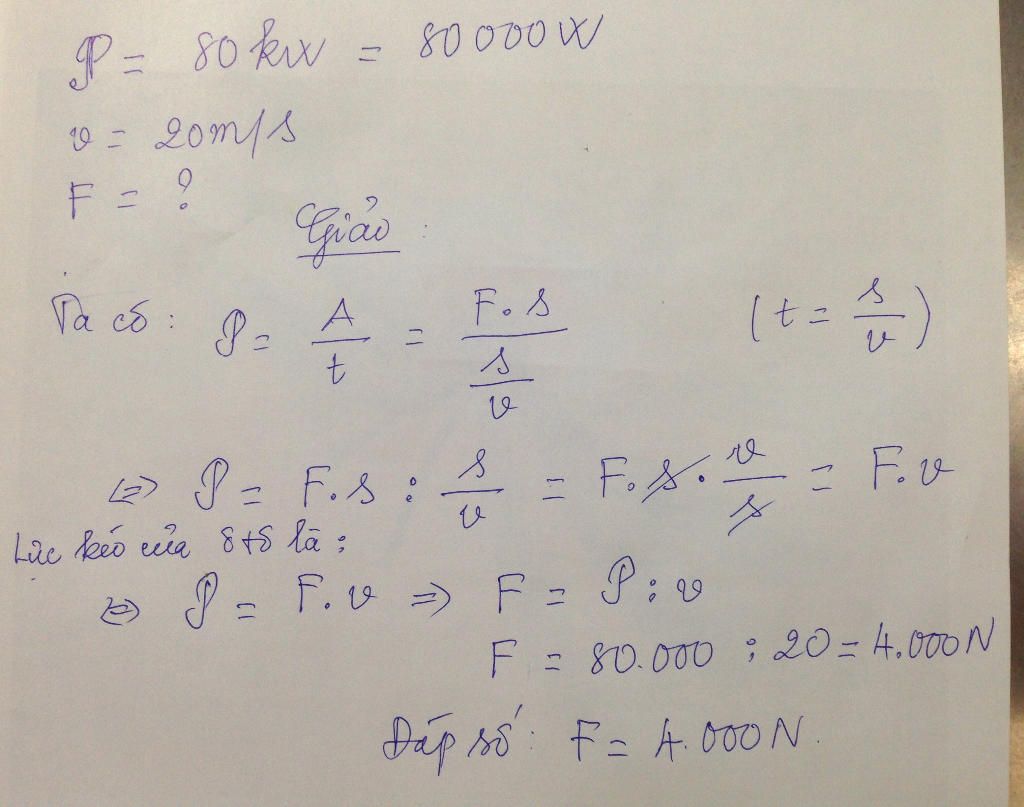 P = 80 kw = 80000W
v = 20m/s
F = ?
Giải :
Ta có : P = A/t = F.s/(s/v) (t = s/v)
⇔ P = F.s : s/v = F.s . v/s = F.v
Lực kéo của ôtô là :
⇔ P = F.v ⇒ F = P : v
F = 80.000 : 20 = 4.000N
Đáp số : F = 4.000N.